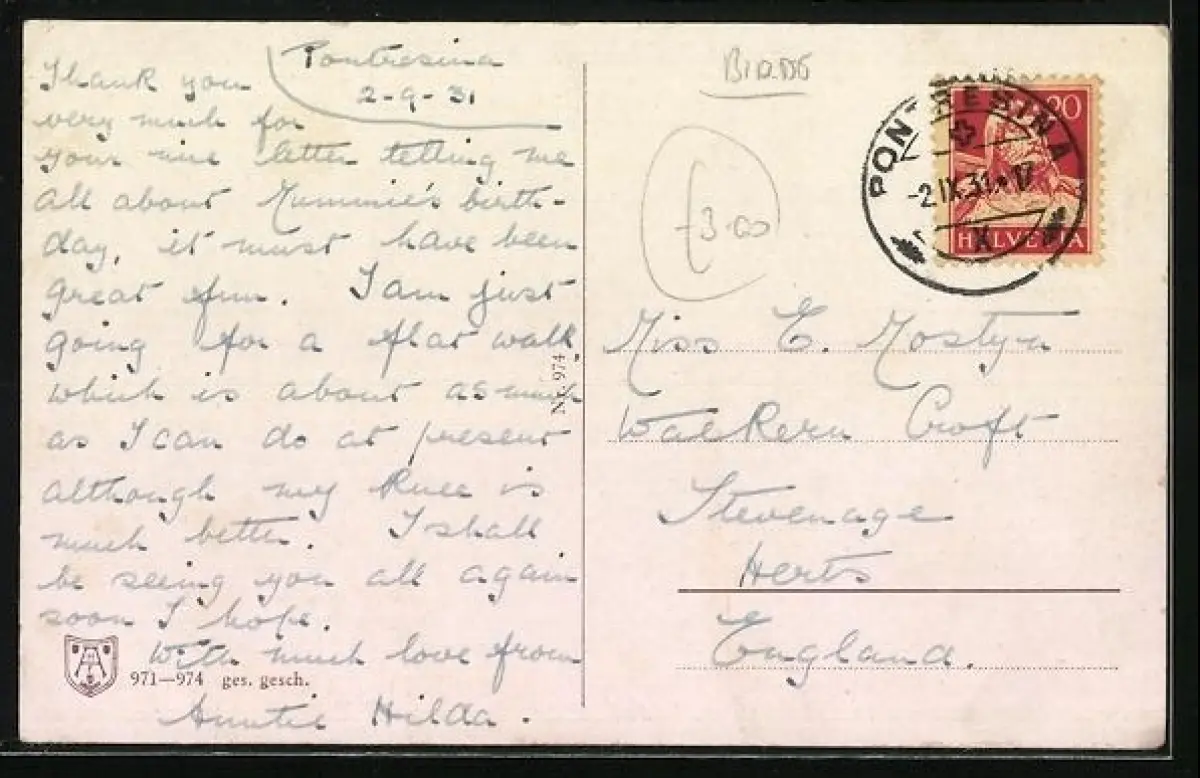 Pontresina
2-9-31
Thank you
very much for
your nice letter telling me
all about Mummie's birth-
day, it must have been
great fun. I am just
going for a flat walk,
which is about as much
as I can do at present
although my knee is
much better. I shall
be seeing you all again
soon I hope.
With much love from
Auntie Hilda.
971—974 ges. gesch.
Nr. 974
BIRDS
£3.00
PONTRESINA
-2.IX.31.17
X
20
HELVETIA
Miss E. Mostyn
Walkern Croft
Stevenage
Herts
England.